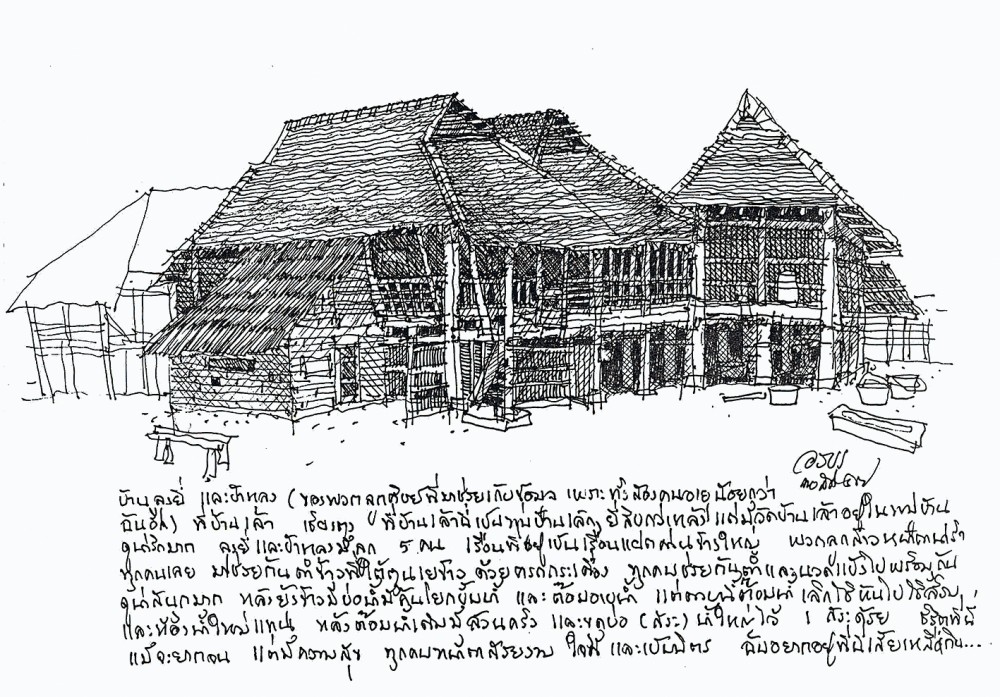 บ้านลุงยี่ และป้าหลง (ของพวกลูกศิษย์ที่มาช่วยเก็บข้อมูล เพราะทั้งสองคนอายุน้อยกว่า
ฉันอีก) ที่บ้านเล้า เชียงตุง ที่บ้านเล้านี้เป็นหมู่บ้านเล็กๆ ยี่สิบกว่าหลัง แต่มีวัดบ้านเล้าอยู่ในหมู่บ้าน
ลุงยี่และป้าหลงมีลูก 5 คน เรือนที่อยู่เป็นเรือนแฝดขนานใหญ่ พวกลูกสาวหน้าตาน่ารัก
ทุกคนเลย มาช่วยกันตำข้าวที่ใต้ถุนยุ้งข้าว ด้วยครกกระเดื่อง ทุกคนช่วยกันตำและนวดแป้งไปพร้อมกัน
ดูน่าสนุกมาก หลังยุ้งข้าวมีบ่อน้ำมีคันโยกปั๊มน้ำ และต๊อมอาบน้ำ แต่ ต๊อมน้ำเลิกใช้หันไปใช้ส้วม
และห้องน้ำใหม่แทน หลังต๊อมน้ำเดิมมีสวนครัว และขุดบ่อ (สระ) น้ำใหญ่ไว้ 1 สระด้วย ชีวิตที่นี่
แม้จะยากจน แต่มีความสุข ทุกคนหน้าตาสวยงาม ใจดี และเป็นมิตร ฉันอยากอยู่ที่นี่เสียเหลือเกิน...